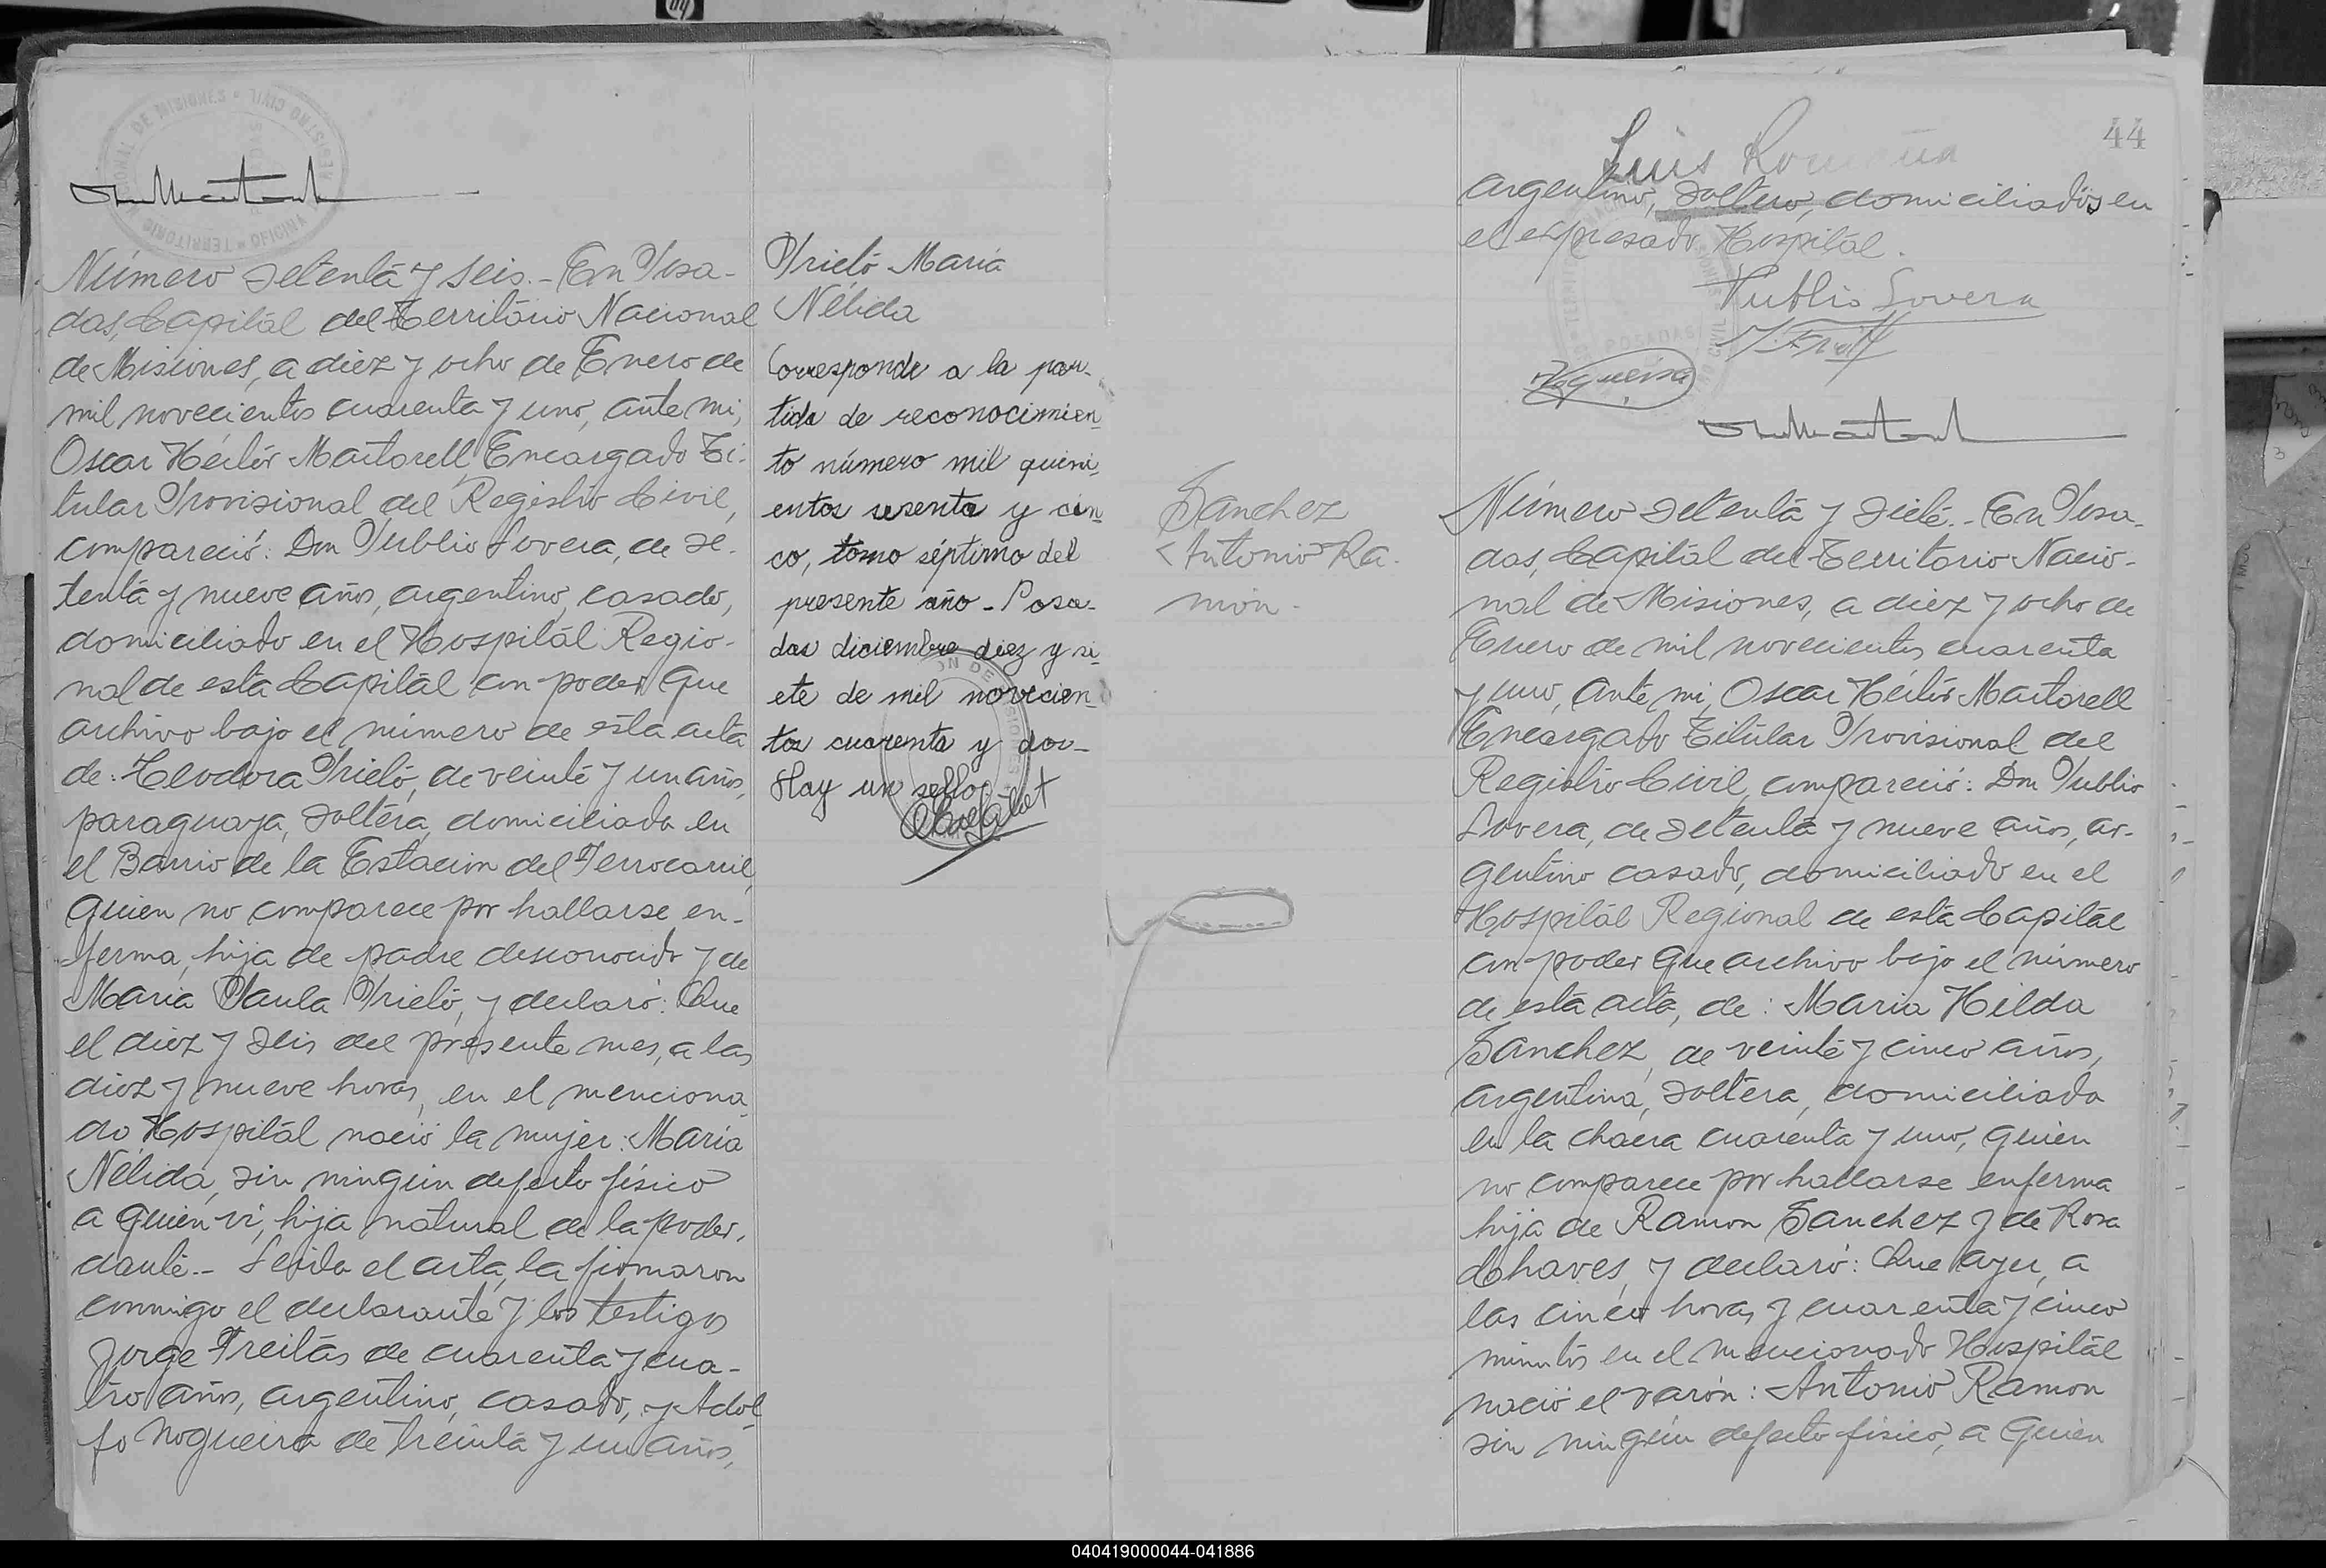 Número setenta y seis.- En Posa-
das, Capital del Territorio Nacional
de Misiones, a diez y ocho de Enero de
mil novecientos cuarenta y uno, ante mi,
Oscar Héctor Martorell, Encargado Ti-
tular Provisional del Registro Civil,
compareció: Don Publio Lovera, de se-
tenta y nueve años, argentino, casado,
domiciliado en el Hospital Regio-
nal de esta Capital con poder que
archivo bajo el número de esta acta
de: Teodora Prieto, de veinte y un años,
paraguaya, soltera, domiciliada en
el Barrio de la Estacion del Ferrocarril,
quien no comparece por hallarse en-
ferma, hija de padre desconocido y de
Maria Paula Prieto, y declaró: Que
el diez y seis del presente mes, a las
diez y nueve horas, en el menciona-
do Hospital nació la mujer: Maria
Nélida, sin ningún defecto físico
a quien vi, hija natural de la poder-
dante.- Leida el acta, la firmaron
conmigo el declarante y los testigos
Jorge Freitas de cuarenta y cua-
tro años, argentino, casado, y Adol-
fo Nogueira de treinta y un años,
Prieto Maria
Nélida
Corresponde a la par-
tida de reconocimien-
to número mil quini-
entos sesenta y cin-
co, tomo séptimo del
presente año - Posa-
das diciembre diez y si-
ete de mil novecien-
tos cuarenta y dos-
Hay un sello.
44
Luis
argentino, soltero, domiciliados en
el expresado Hospital.
Publio Lovera
Nogueira
Sanchez
Antonio Ra-
món-
Número setenta y siete.- En Posa-
das, Capital del Territorio Nacio-
nal de Misiones, a diez y ocho de
Enero de mil novecientos cuarenta
y uno, ante mi, Oscar Héctor Martorell
Encargado Titular Provisional del
Registro Civil, compareció: Don Publio
Lovera, de setenta y nueve años, ar-
gentino casado, domiciliado en el
Hospital Regional de esta Capital
con poder que archivo bajo el número
de esta acta, de: Maria Hilda
Sanchez, de veinte y cinco años,
argentina, soltera, domiciliada
en la chacra cuarenta y uno, quien
no comparece por hallarse enferma
hija de Ramon Sanchez y de Rosa
Chaves, y declaró: Que ayer, a
las cinco horas y cuarenta y cinco
minutos en el mencionado Hospital
nació el varón: Antonio Ramon
sin ningún defecto físico, a quien
040419000044-041886